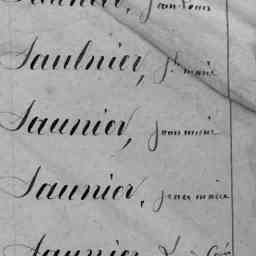 Jean Louis
Saulnier, Jn marie
Saunier, Jean marie
Saunier, Jean marie
Saunier